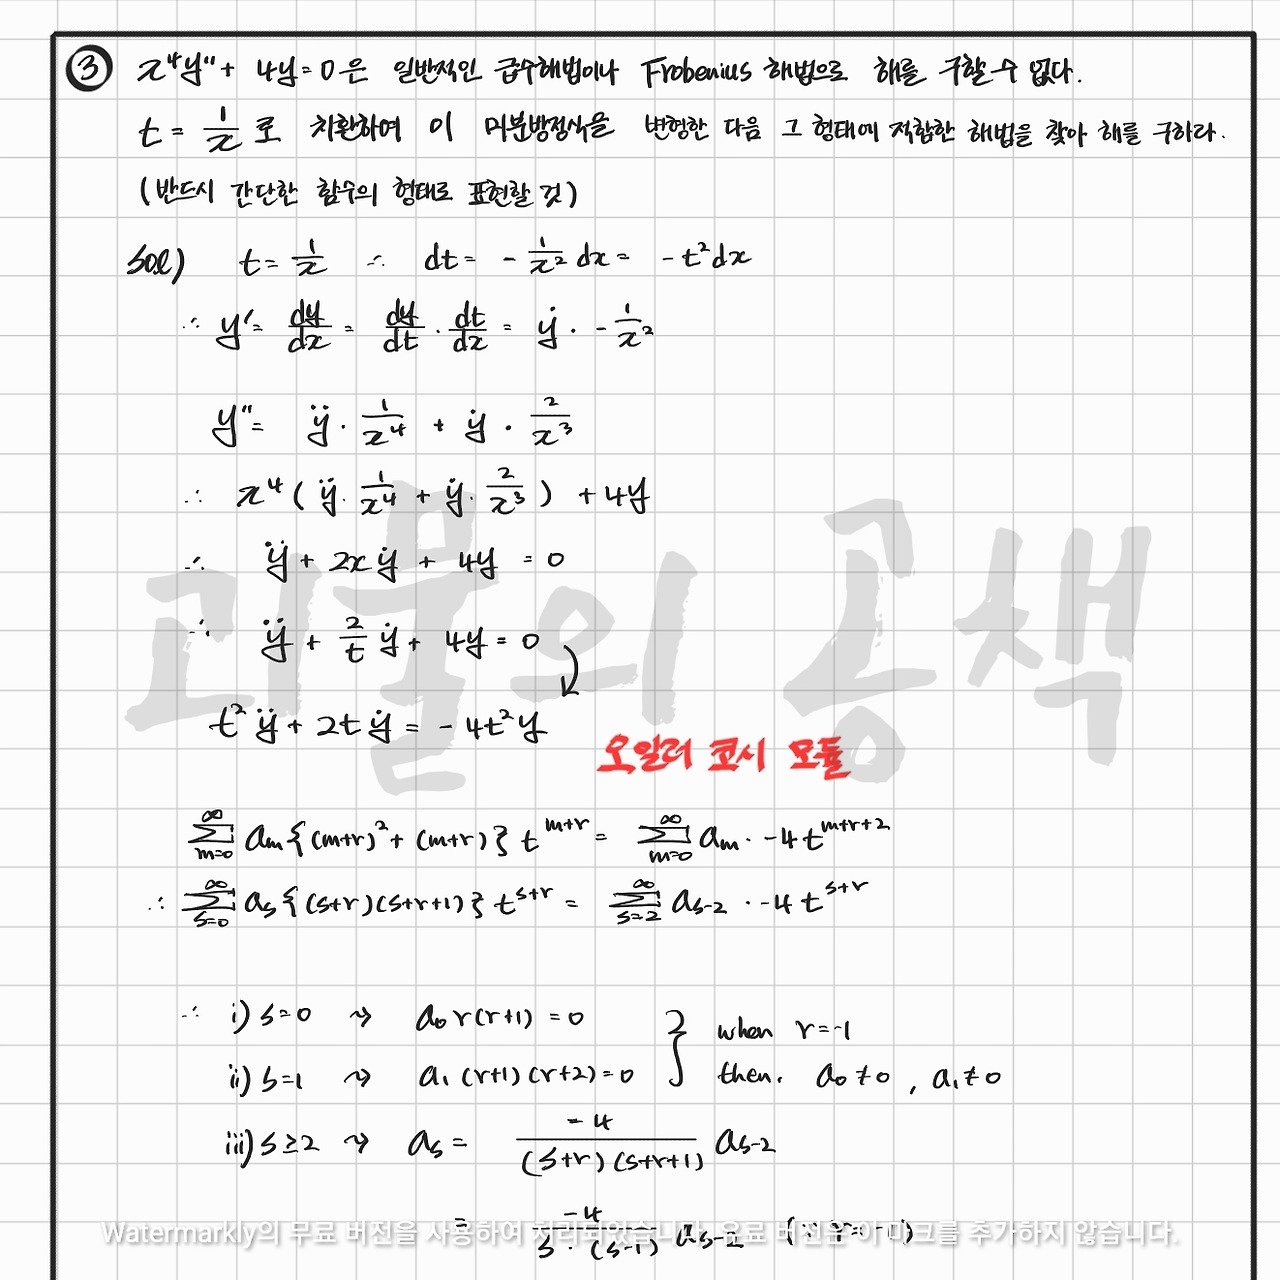 ③ x⁴y'' + 4y = 0 은 일반적인 급수해법이나 Frobenius 해법으로 해를 구할 수 없다.
t = 1/x 로 치환하여 이 미분방정식을 변형한 다음 그 형태에 적합한 해법을 찾아 해를 구하라.
(반드시 간단한 함수의 형태로 표현할 것)
sol) t = 1/x ∴ dt = - 1/x² dx = - t² dx
∴ y' = dy/dx = dy/dt · dt/dx = ẏ · - 1/x²
y'' = ÿ · 1/x⁴ + ẏ · 2/x³
∴ x⁴ ( ÿ · 1/x⁴ + ẏ · 2/x³ ) + 4y
∴ ÿ + 2x ẏ + 4y = 0
∴ ÿ + 2/t ẏ + 4y = 0
t² ÿ + 2t ẏ = - 4t² y
오일러 코시 모듈
괴물의 공책
∑_{m=0}^{∞} a_m { (m+r)² + (m+r) } t^{m+r} = ∑_{m=0}^{∞} a_m · -4 t^{m+r+2}
∴ ∑_{s=0}^{∞} a_s { (s+r)(s+r+1) } t^{s+r} = ∑_{s=2}^{∞} a_{s-2} · -4 t^{s+r}
∴ i) s=0 ⇝ a₀ r(r+1) = 0 } when r = -1
ii) s=1 ⇝ a₁ (r+1)(r+2) = 0 then. a₀ ≠ 0 , a₁ ≠ 0
iii) s ≥ 2 ⇝ a_s = -4/((s+r)(s+r+1)) a_{s-2}
= -4/(s · (s-1)) a_{s-2} (∵ r = -1)
Watermarkly의 무료 버전을 사용하여 처리되었습니다. 유료 버전은 이 마크를 추가하지 않습니다.